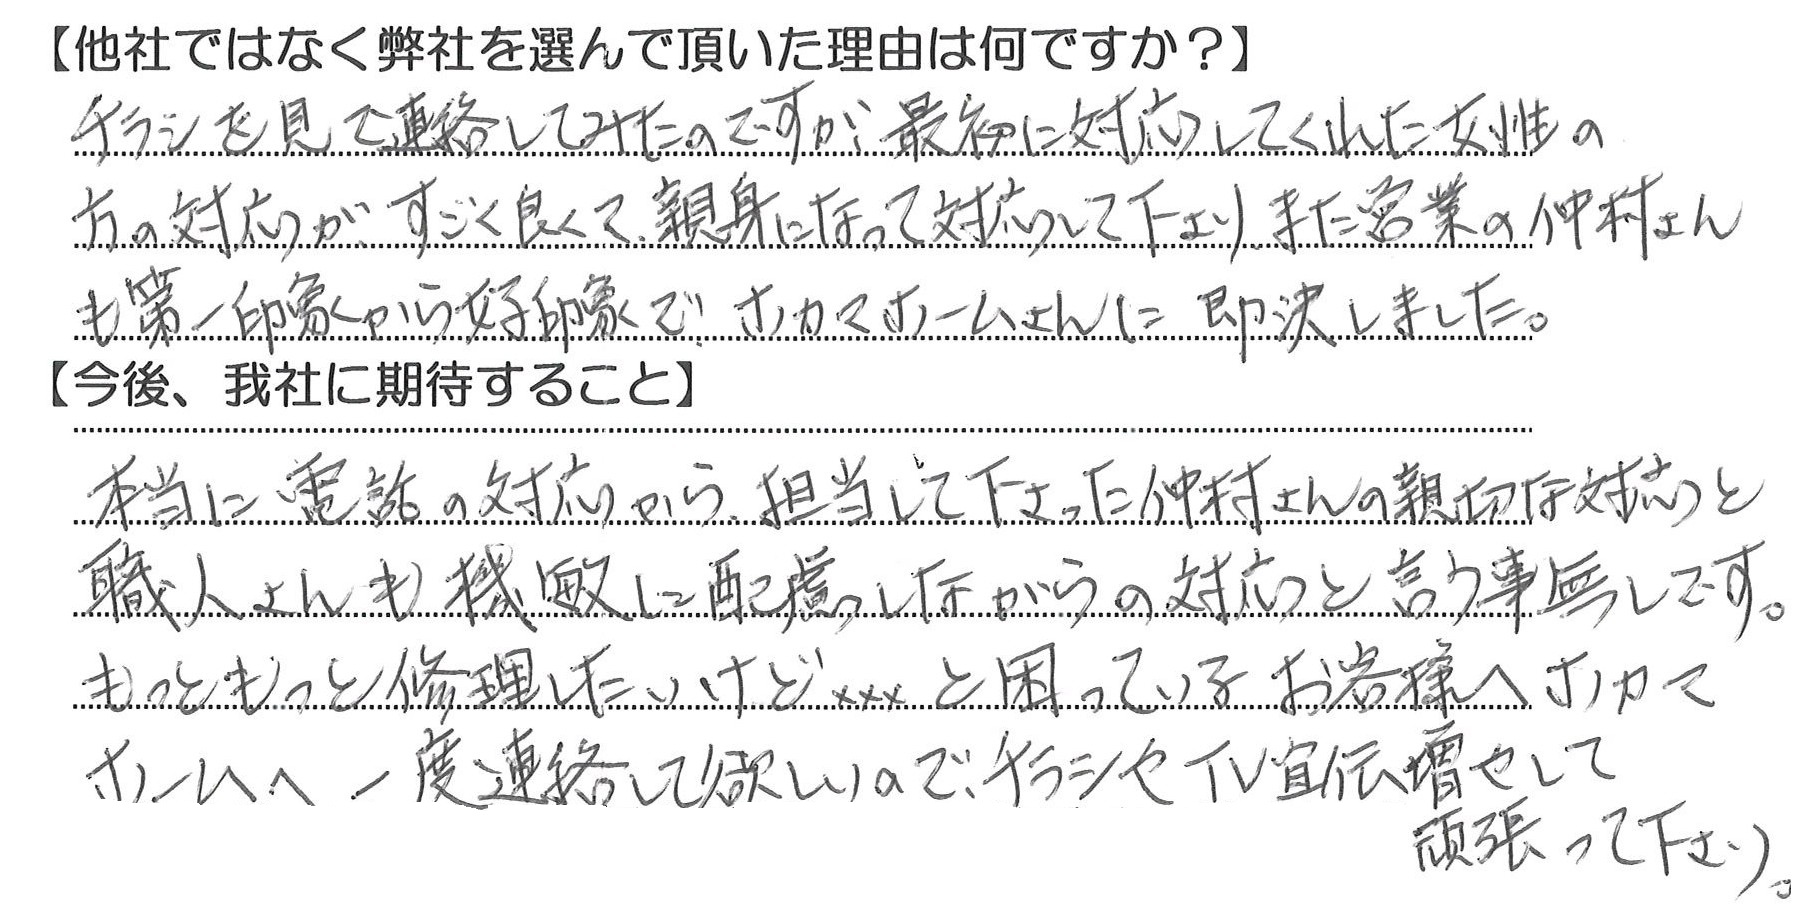 【他社ではなく弊社を選んで頂いた理由は何ですか？】
チラシを見て連絡してみたのですが、最初に対応してくれた女性の
方の対応が、すごく良くて、親身になって対応して下さり、また営業の仲村さん
も第一印象から好印象で、オカマホームさんに即決しました。
【今後、我社に期待すること】
本当に電話の対応から、担当して下さった仲村さんの親切な対応と
職人さんも機敏に配慮しながらの対応と言う事無しです。
もっともっと修理したいけど×××と困っているお客様へオカマ
ホームへ一度連絡して欲しいので、チラシやTV宣伝増やして
頑張って下さい。